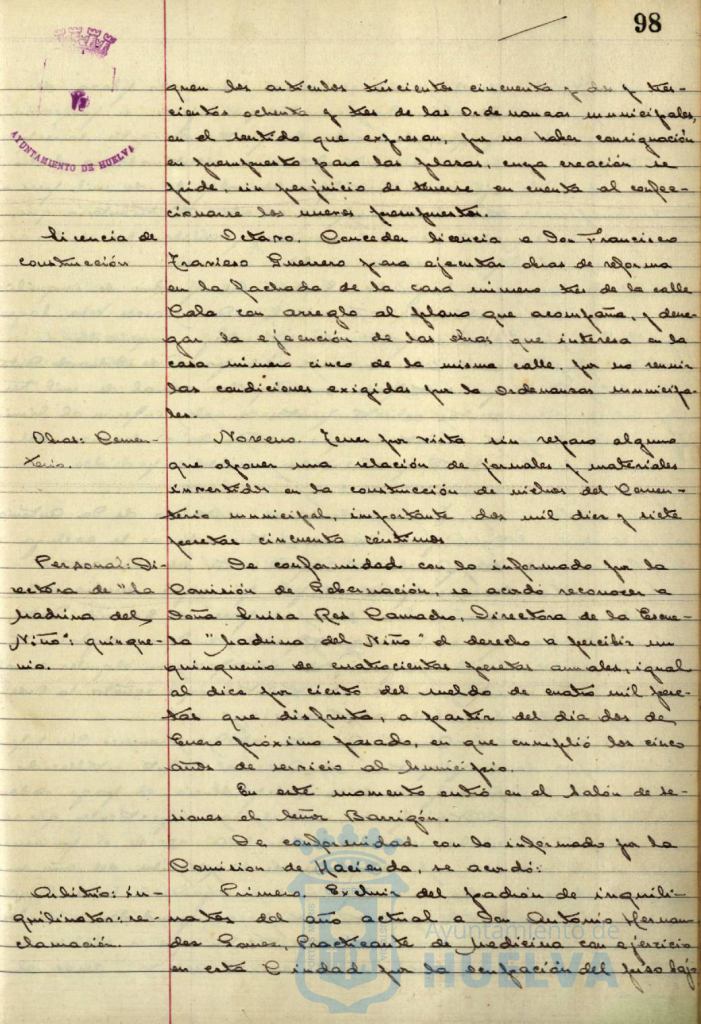 98
AYUNTAMIENTO DE HUELVA
quen los artículos trescientos cincuenta y dos y tres-
cientos ochenta y tres de las Ordenanzas municipales,
en el sentido que expresan, por no haber consignación
en presupuesto para las plazas, cuya creación se
pide, sin perjuicio de tenerse en cuenta al confec-
cionarse los nuevos presupuestos.
Licencia de
construcción
Octavo. Conceder licencia a Don Francisco
Travieso Guerrero para ejecutar obras de reforma
en la fachada de la casa número tres de la calle
Cala con arreglo al plano que acompaña, y dene-
gar la ejecución de las obras que interesa en la
casa número cinco de la misma calle, por no reunir
las condiciones exigidas por la Ordenanzas municipa-
les.
Obras: Cemen-
terio.
Noveno. Tener por vista sin reparo alguno
que oponer una relación de jornales y materiales
invertidos en la construcción de nichos del Cemen-
terio municipal, importante dos mil diez y siete
pesetas cincuenta céntimos
Personal: Di-
rectora de "La
Madrina del
Niño": quinque-
nio.
De conformidad con lo informado por la
Comisión de Gobernación, se acordó reconocer a
Doña Luisa Ros Camacho, Directora de la Escue-
la "Madrina del Niño" el derecho a percibir un
quinquenio de cuatrocientas pesetas anuales, igual
al diez por ciento del sueldo de cuatro mil pese-
tas que disfruta, a partir del día dos de
Enero próximo pasado, en que cumplió los cinco
años de servicio al Municipio.
En este momento entró en el Salón de se-
siones el Señor Barrigón.
De conformidad con lo informado por la
Comision de Hacienda, se acordó:
Arbitrio: in-
quilinatos: re-
clamación.
Primero. Excluir del padrón de inquili-
natos del año actual a Don Antonio Hernan
dez Gomez, Practicante de Medicina con ejercicio
en esta Ciudad por la ocupación del piso bajo
Ayuntamiento de
HUELVA